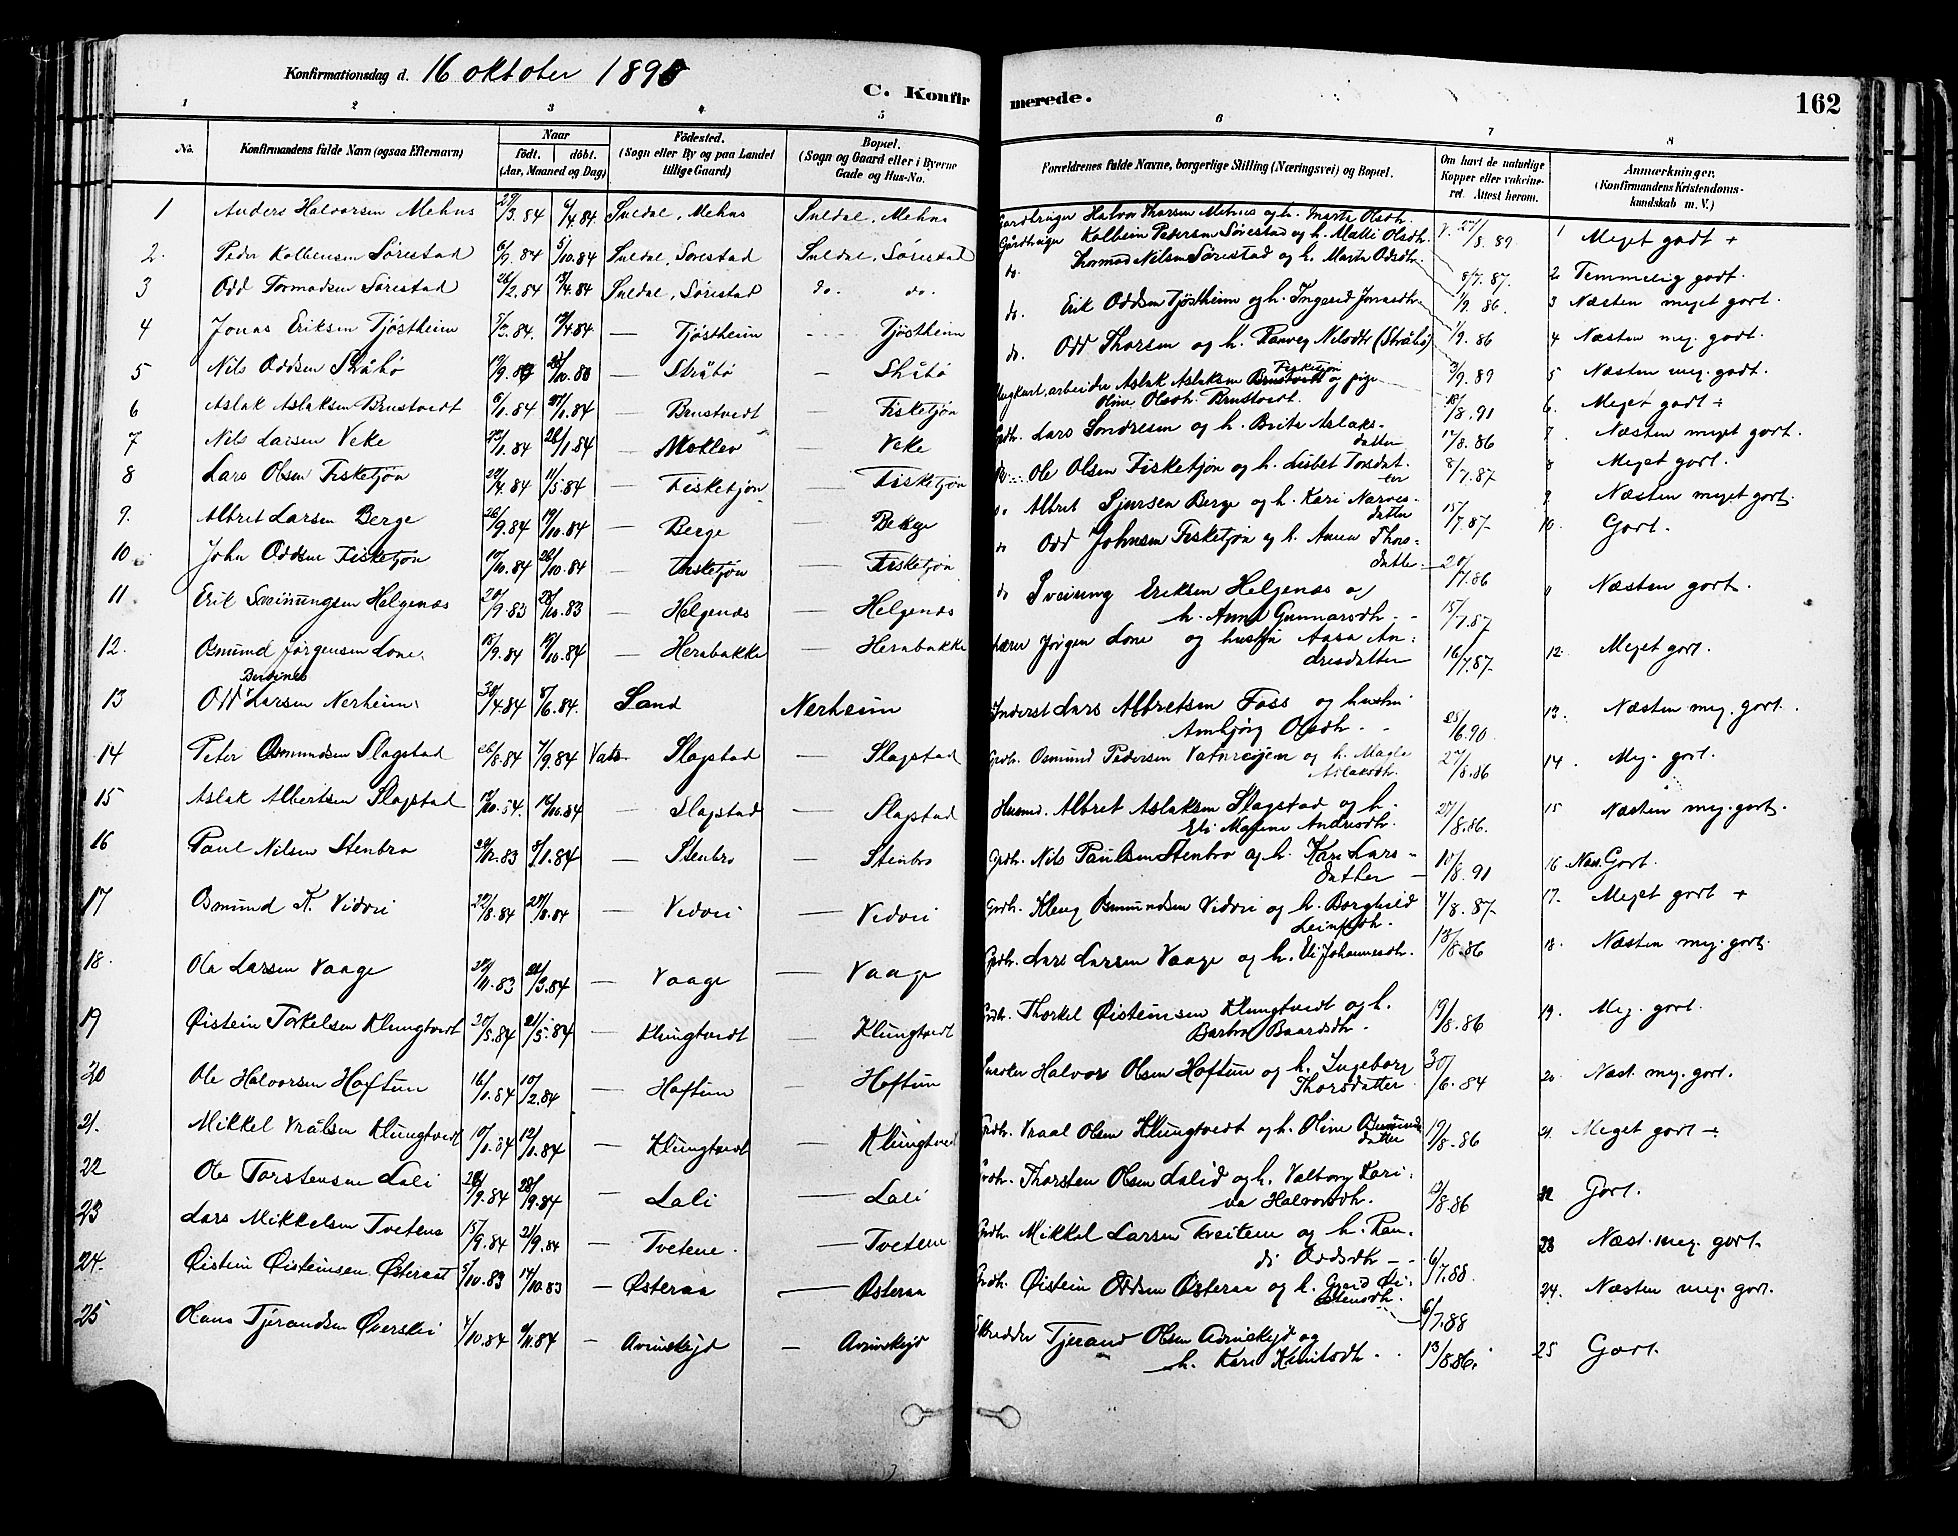 Konfirmationsdag d. 16 oktober 1898
C. Konfirmerede.
162
1 2 3 4 5 6 7 8
No.
Konfirmandens fulde Navn (ogsaa Efternavn)
Naar
født. døbt.
(Aar, Maaned og Dag)
Fødested.
(Sogn eller By og paa Landet tillige Gaard)
Bopæl.
(Sogn og Gaard eller i Byerne Gade og Hus-No.
Forældrenes fulde Navne, borgerlige Stilling (Næringsvei) og Bopæl.
Om havt de naturlige Kopper eller vakcineret. Attest herom.
Anmærkninger.
(Konfirmandens Kristendomskundskab m. V.)
1 Anders Halvorsen Mehus 29/3.84 6/4.84 Suldal, Mehus Suldal, Mehus Gardbruger Halvor Thorsen Mehus og h. Marta Olsdtr. 27/8.89 1 Meget godt +
2. Peder Kolbensen Sørestad 6/9.84 5/10.84 Suldal, Sørestad Suldal, Sørestad Gårdbruger Kolbein Pedersen Sørestad og h. Malli Olsdtr. 8/7.87. 2 Temmelig godt.
3 Odd Tormodsen Sørestad 26/2.84 13/4.84 Suldal, Sørestad do. do. do. Thormod Nilsen Sørestad og h. Marta Odsdtr. 1/9.86. 3 Næsten meget godt.
4 Jonas Eriksen Tjøstheim 5/3.84. 13/4 84 — Tjøstheim Tjøstheim do. Erik Oddsen Tjøstheim og h. Ingerid Jonasdtr. 1/9.86 4 Næsten mej. godt.
5 Nils Oddsen Stråbø — Stråbø Stråbø do. Odd Thorsen og h. Ranveg Nilsdtr (Stråbø) 3/9.89 5 Næsten mej. godt.
6 Aslak Aslaksen Brustvedt 6/1.84 27/1.84 — Brustvedt — Fisketjøn arbeider Aslak Aslaksen Brustvedt Fisketjøn og pige Oline Olsdtr. Brustvedt. 10/8.91 6. Meget godt ÷
7 Nils Larsen Veke 23/1.84 — Moklev — Veke Grdbr. Lars Sondresen og h. Brita Aslaksdatter 12/8.86 7. Næsten meget godt.
8 Lars Olsen Fisketjøn 20/4.84 11/5.84 — Fisketjøn — Fisketjøn Ole Olsen Fisketjøn og h. Lisbet Torsdatter 8/7.87 8 Meget godt.
9. Albret Larsen Berge 26/9.84 19/10.84 — Berge — Berge do Albret Sjursen Berge og h. Kari Narvesdatter 15/7.87 9 Næsten meget godt.
10 John Oddsen Fisketjøn 10/10.84 26/10.84 — Fisketjøn — Fisketjøn do Odd Johnsen Fisketjøn og h. Anna Thorsdatter. 20/7.86 10. Godt.
11 Erik Sveinungsen Helgenæs 20/9.83 28/10.83 — Helgenæs — Helgenæs do Sveinung Eriksen Helgenæs og h. Anna Gunnarsdtr. 15/7.87 11 Næsten godt.
12. Osmund Jørgensen Lone. 15/9.84 19/10.84 — Herabakke — Herabakke Lærer Jørgen Lone og hustru Aasa Andresdatter 16/7.87. 12. Meget godt.
13 Odd Berdines Larsen Nerheim 30/4.84 8/6.84. Sand Nerheim Inderst Lars Albretsen Foss og hustru Ambjørg Olsdtr. 25/6.90 13. Næsten mej. godt.
14 Peter Osmundsen Slagstad 26/8.84 7/9.84 Vats Slagstad — Slagstad Grdbr. Osmund Pedersen og h. Magla Aslaksdtr. 27/8.86 14. Mej. godt.
15 Aslak Albertsen Slagstad 12/10.84. — Slagstad Slagstad Husmd. Albret Aslaksen Slagstad og h. Eli Malene Andersdtr. 27/8.86. 15 Næsten mej. godt.
16 Paul Nilsen Stenbro 29/12.83 8/1.84 — Stenbro — Stenbro Grdbr. Nils Paulsen Stenbro og h. Kari Larsdatter — 10/8.91 16. Næst. Godt.
17 Osmund K. Vidvei 22/8.84 — Vidvei — Vidvei Grdbr. Kleng Osmundsen Vidvei og h. Borghild Leinsdtr. 4/8.87. 17. Meget godt +
18. Ole Larsen Vaage — Vaage — Vaage Grdbr. Lars Larsen Vaage og h. Eli Johannesdtr. 13/8.86 18. Næsten mej. godt.
19 Øistein Torkelsen Klungtvedt 20/5.84 21/5.84 — Klungtvedt Klungtvedt Grdbr. Thorkel Øisteinsen Klungtvedt og h. Barbro Baardsdtr. 19/8.86 19. Mej. godt.
20 Ole Halvorsen Hoftun 16/1.84 10/2.84 — Hoftun — Hoftun Halvor Olsen Hoftun og h. Ingeborg Thorsdatter. 30/6.84 20. Næst. mej. godt.
21. Mikkel Vrålsen Klungtvedt 10/1.84 12/1.84 — Klungtvedt — Klungtvedt Grdbr. Vraal Olsen Klungtvedt og h. Oline Osmundsdatter 19/8.86 21. Meget godt ÷
22 Ole Torstensen Lali 28/9.84 — Lali — Lali Grdbr. Thorsten Olsen Lalid og h. Valborg Karina Halvorsdtr. 12/8.86 22 Godt.
23 Lars Mikkelsen Tvetene 15/9.84 21/9.84 — Tvetene. — Tvetene Grdbr. Mikkel Larsen Tveiten og h. Randi Oddsdtr — 6/7.88. 23 Næst. mej. godt.
24. Øistein Øisteinsen Østeraat 5/10.83 14/10.83 — Østeraa — Østeraa Grdbr. Øistein Oddsen Østeraa og h. Gurid Øistensdtr. 6/7.88 24. Næsten mej. godt.
25 Hans Tjerandsen Øverskei 4/10.84 9/11.84 — Avinskejd — Avinskejd Skredder Tjerand Olsen Avinskejd og h. Kari Knutsdtr. 13/8.86. 25 Godt.